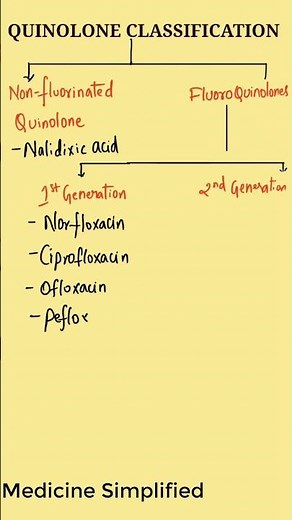 QUINOLONE CLASSIFICATION
Non-fluorinated
Quinolone
- Nalidixic acid
FluoroQuinolones
1st Generation
- Norfloxacin
- Ciprofloxacin
- Ofloxacin
- Peflox
2nd Generation
Medicine Simplified